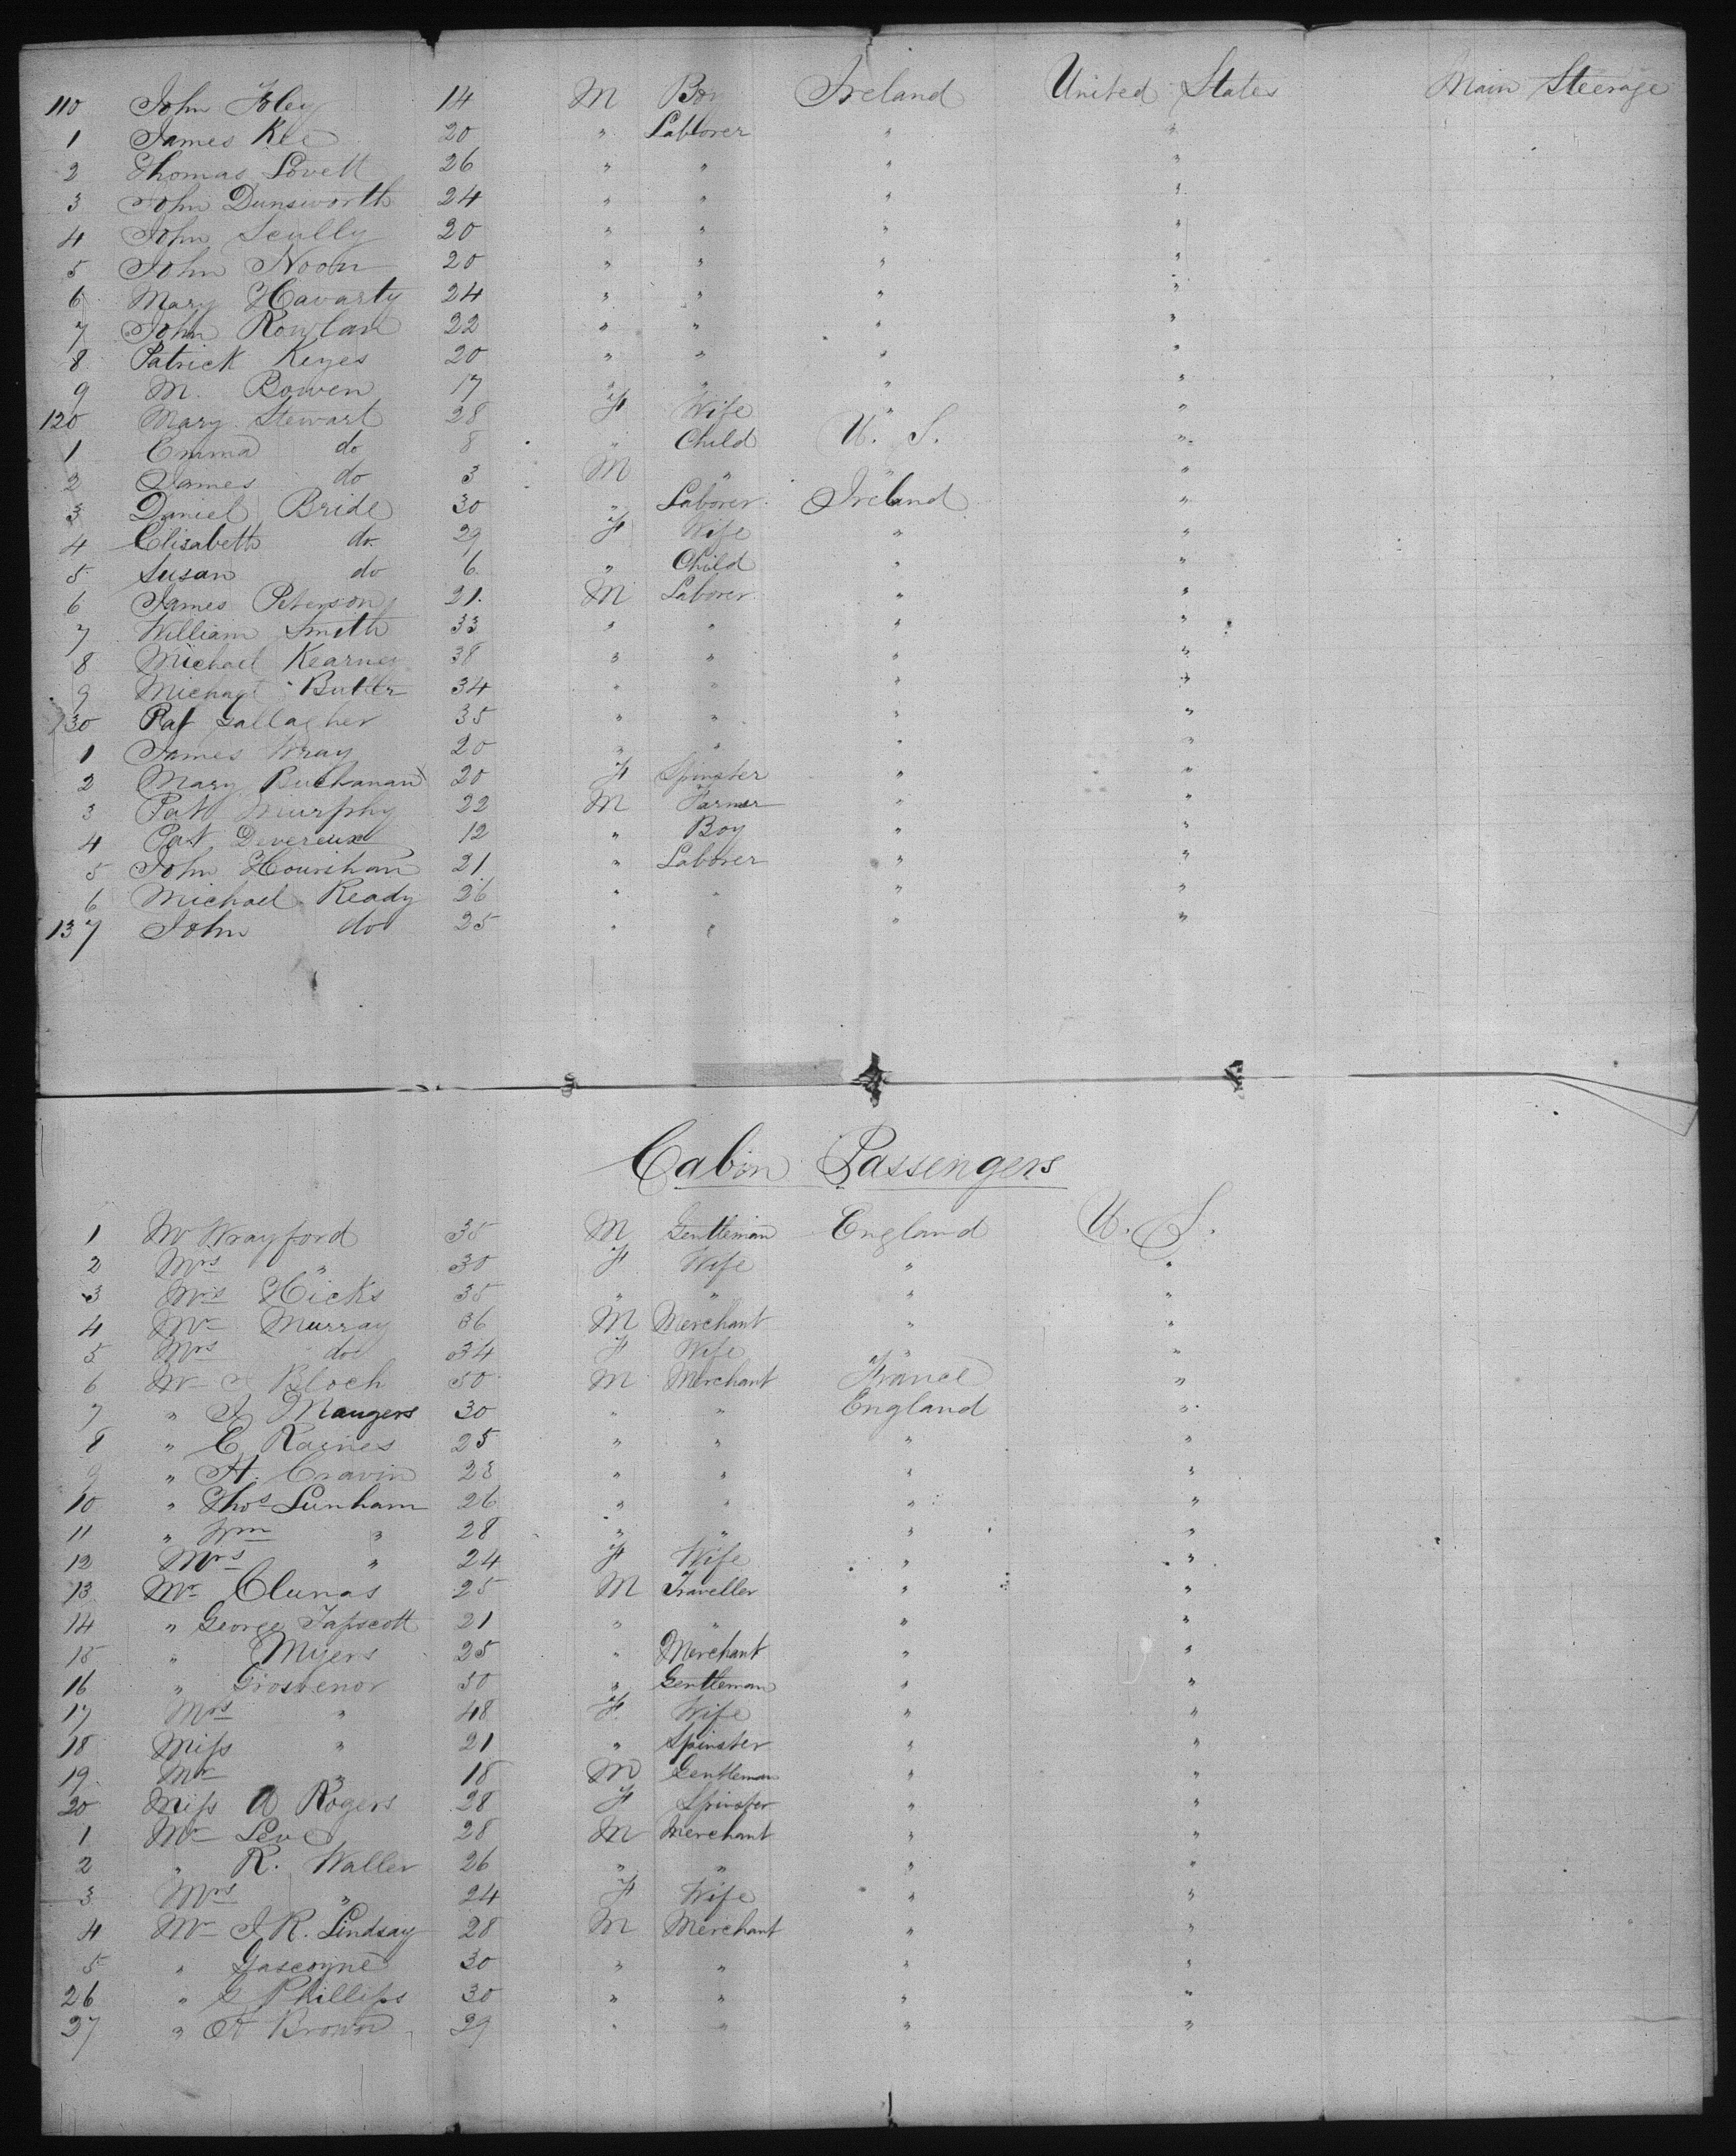 110 John Foley 14 M Boy Ireland United States Main Steerage
1 James Kee 20 " Laborer " "
2 Thomas Lovett 26 " " " "
3 John Dunsworth 24 " " " "
4 John Scully 20 " " " "
5 John Noon 20 " " " "
6 Mary Havarty 24 " " " "
7 John Rowlan 22 " " " "
8 Patrick Keyes 20 " " " "
9 M. Bowen 17 " " " "
120 Mary Stewart 28 F Wife " "
1 Emma do 8 " Child U. S. "
2 James do 3 M " " "
3 Daniel Bride 30 " Laborer Ireland "
4 Elisabeth do 29 F Wife " "
5 Susan do 6 " Child " "
6 James Peterson 21 M Laborer " "
7 William Smith 33 " " " "
8 Michael Kearney 38 " " " "
9 Michael Butler 34 " " " "
130 Pat Gallagher 35 " " " "
1 James Wray 20 " " " "
2 Mary Buchanan 20 F Spinster " "
3 Pat Murphy 22 M Farmer " "
4 Pat Devereux 12 " Boy " "
5 John Hourihan 21 " Laborer " "
6 Michael Ready 26 " " " "
137 John do 25 " " " "
Cabin Passengers
1 Mr Wrayford 35 M Gentleman England U. S.
2 Mrs " 30 F Wife " "
3 Mrs Hicks 35 " " " "
4 Mr Murray 36 M Merchant " "
5 Mrs do 34 F Wife " "
6 Mr Bloch 50 M Merchant France "
7 " J Maugers 30 " " England "
8 " E Raines 25 " " " "
9 " H. Cravin 23 " " " "
10 " Thos Lunham 26 " " " "
11 " Wm " 28 " " " "
12 Mrs " 24 F Wife " "
13 Mr Clunas 25 M Traveller " "
14 " George Tapscott 21 " " " "
15 " Myers 25 " Merchant " "
16 " Grosvenor 50 " Gentleman " "
17 Mrs " 48 F Wife " "
18 Miss " 21 " Spinster " "
19 Mr " 18 M Gentleman " "
20 Miss A Rogers 28 F Spinster " "
1 Mr Leve 28 M Merchant " "
2 " R. Waller 26 " " " "
3 Mrs " 24 F Wife " "
4 Mr J. R. Lindsay 28 M Merchant " "
5 " Gascoyne 30 " " " "
26 " G Phillips 30 " " " "
27 " Brown 29 " " " "